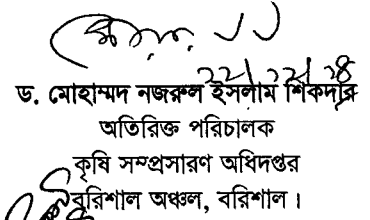 ড. মোহাম্মদ নজরুল ইসলাম শিকদার
অতিরিক্ত পরিচালক
কৃষি সম্প্রসারণ অধিদপ্তর
বরিশাল অঞ্চল, বরিশাল।